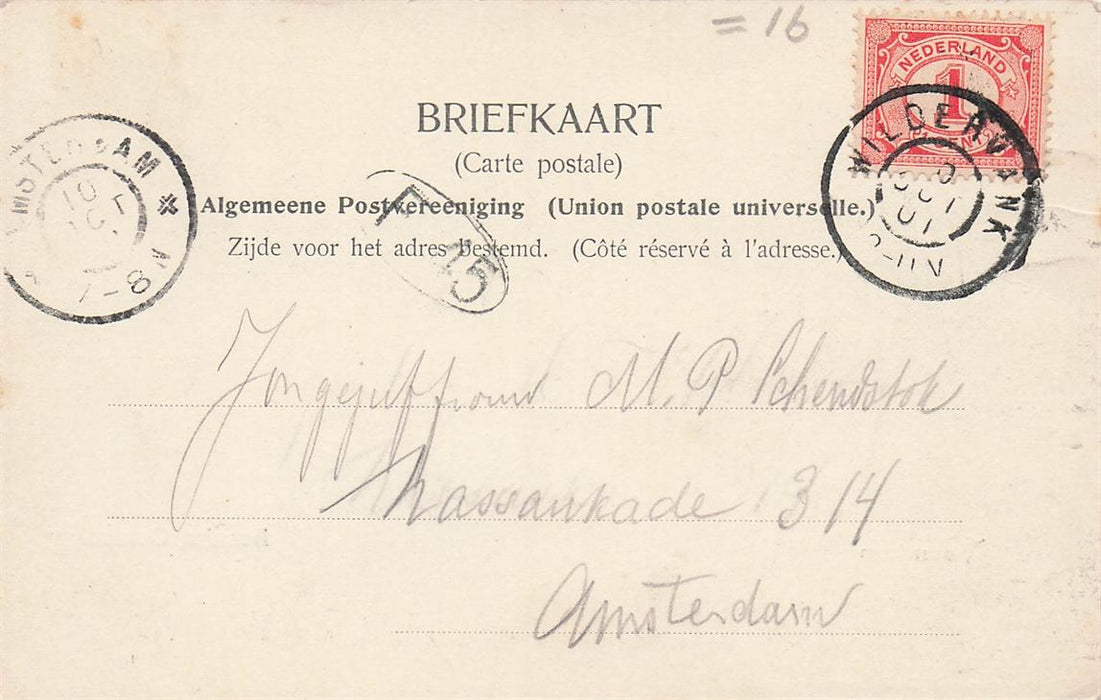 = 16
NEDERLAND
1
CENT
BRIEFKAART
(Carte postale)
WILDERVANK
AMSTERDAM
7-8 N
Algemeene Postvereeniging (Union postale universelle.)
Zijde voor het adres bestemd. (Côté réservé à l'adresse.)
15
Jongejuffrouw M. P Schendstok
Nassaukade 314
Amsterdam